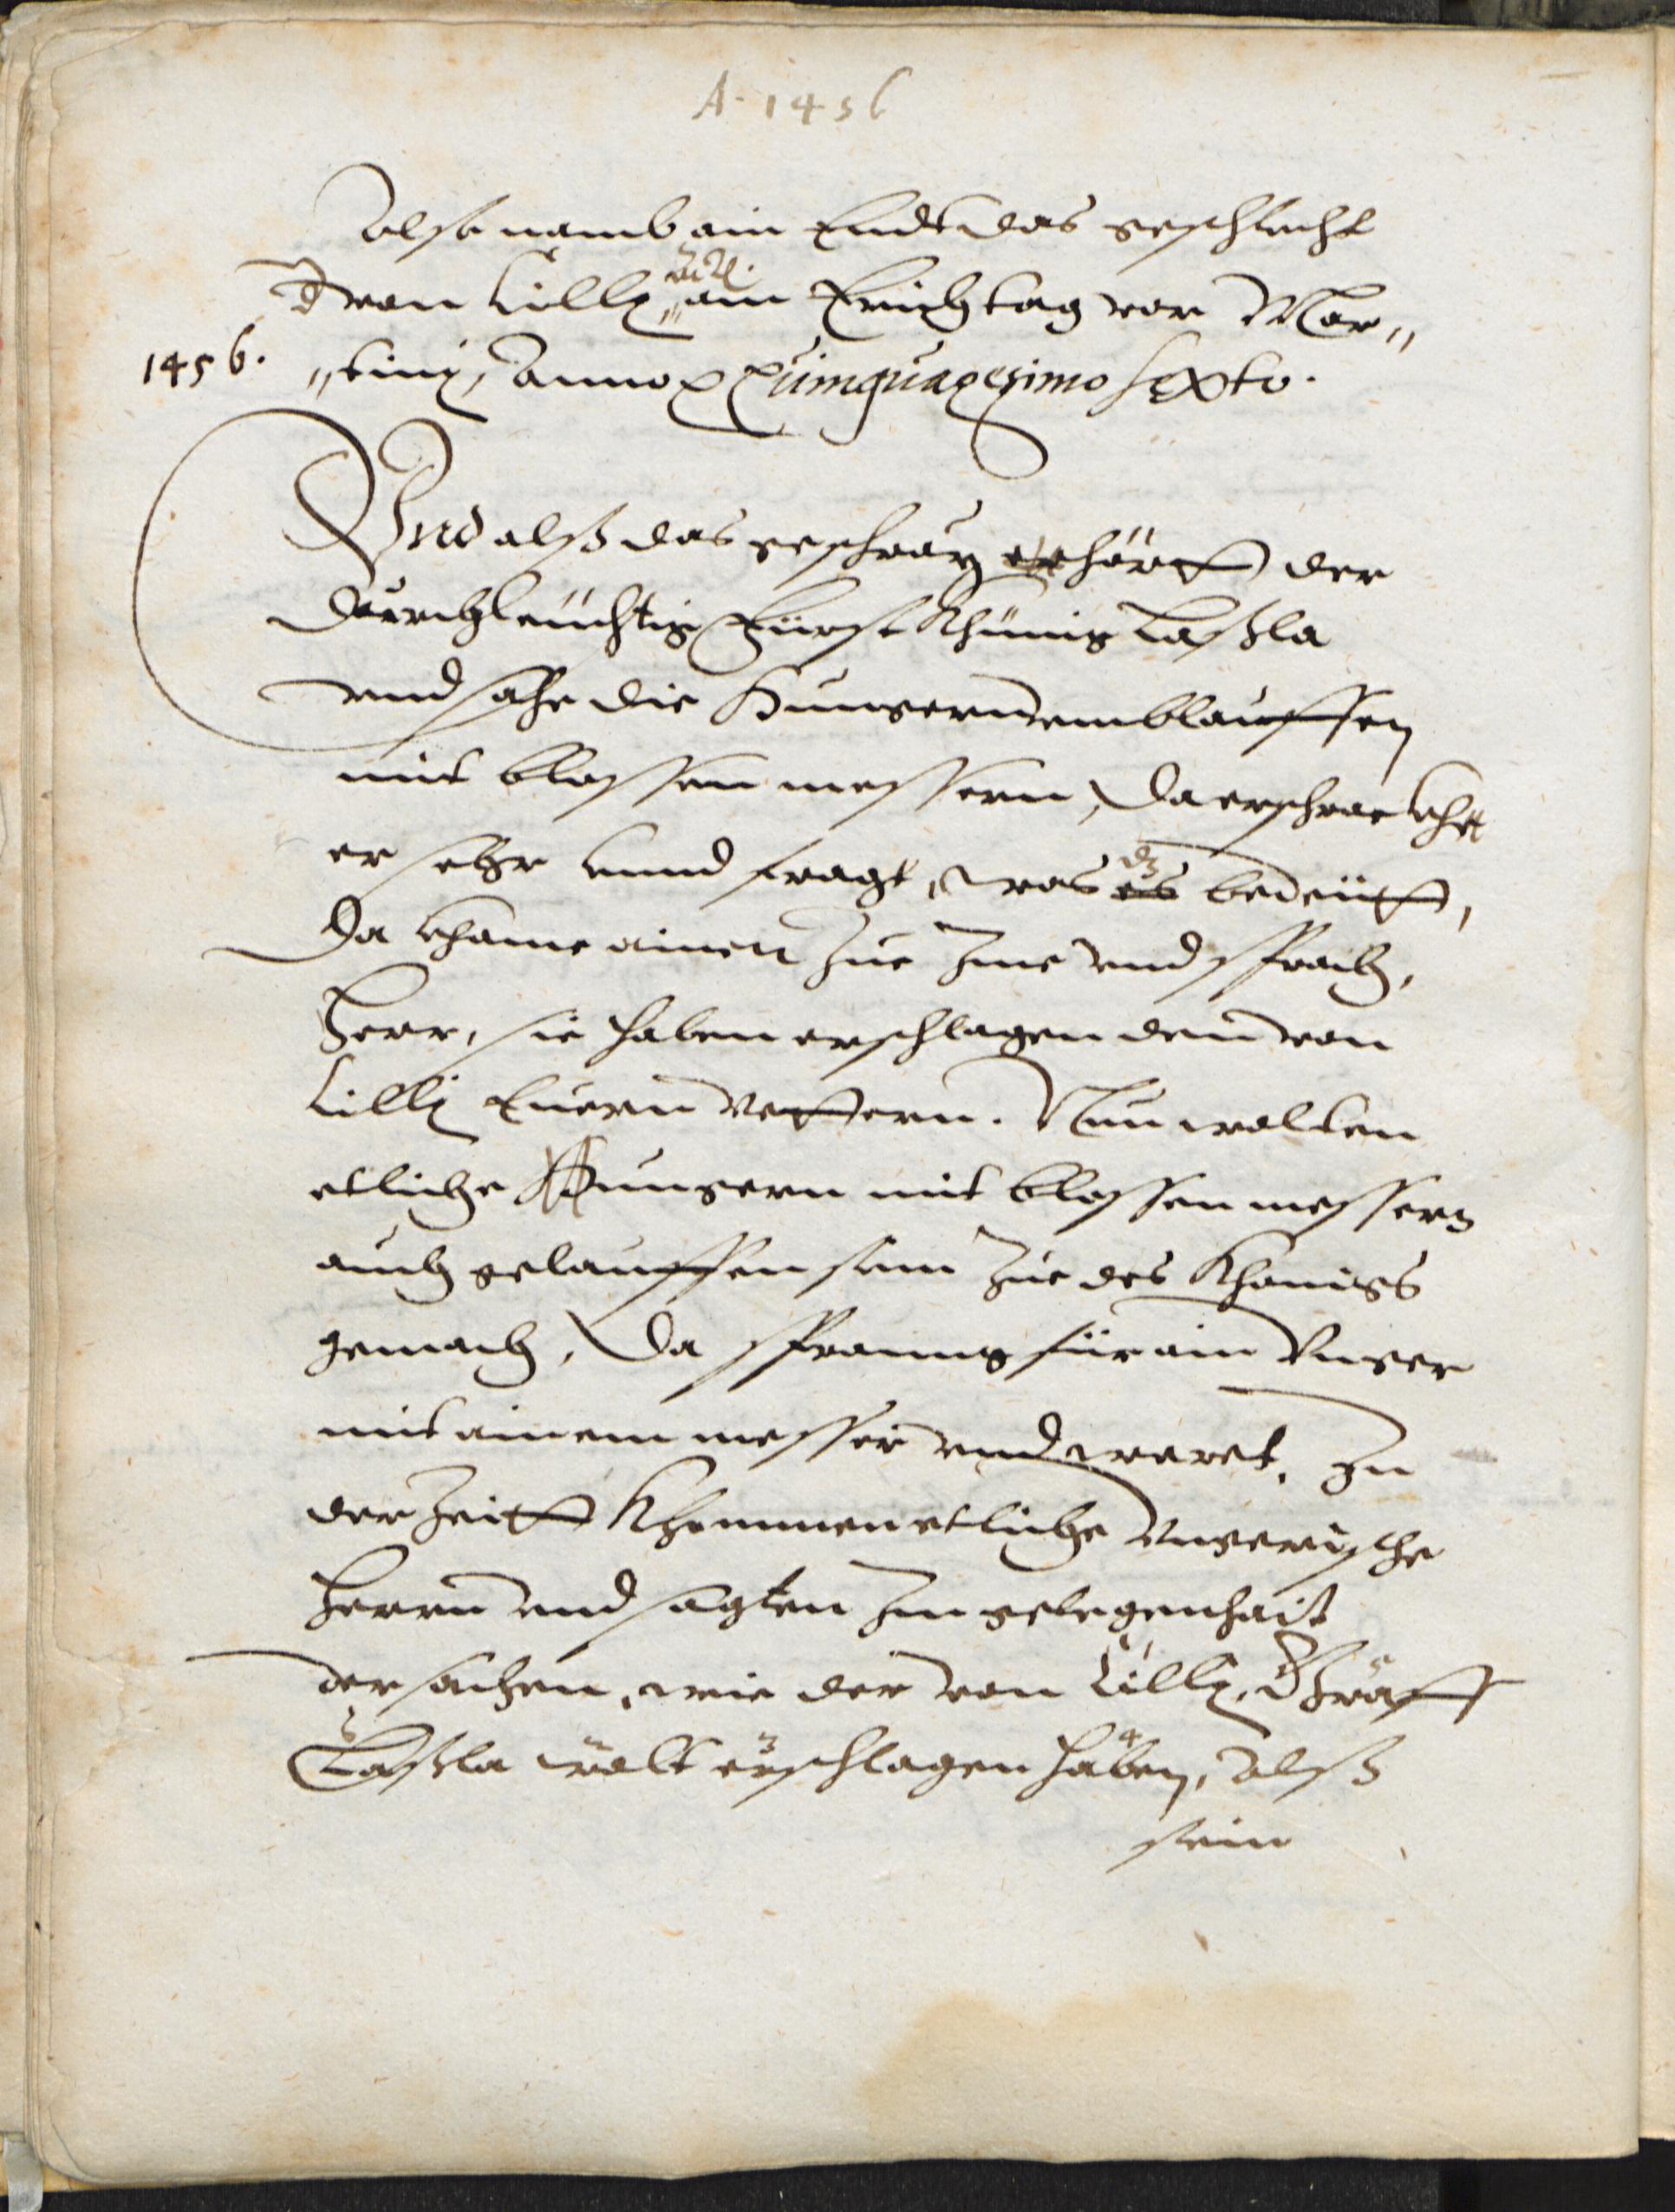 A. 1456
Also namb ain Endt das geschlecht
von Cilly, am Erichtag vor Mar„
1456. „tinj, Anno Quinquagesimo sexto.
Vnd alß das geschray erhörtt der
Durchleuchtig Fürst Khünig Laßla
vnd sahe die Hungern vmblauffen
mit blossen messern, Da erschrackht
er sehr vnnd fragt, was dz bedeütt,
Da khame ainer zue Ime vnd sprach,
Herr, sie haben erschlagen den von
Cilly Euern Vettern. Nun wolten
etliche Hungern mit blossen messern
auch gelauffen sein zue des Khönigs
gemach, Da spranng für ain Vnger
mit ainem messer vnd weret. Zu
der Zeitt Khommen etliche Vngerische
Herrn vnd sagten Im gelegenhait
der sachen, wie der von Cilly, Graff
Laßla wolt erschlagen haben, Alß
sein